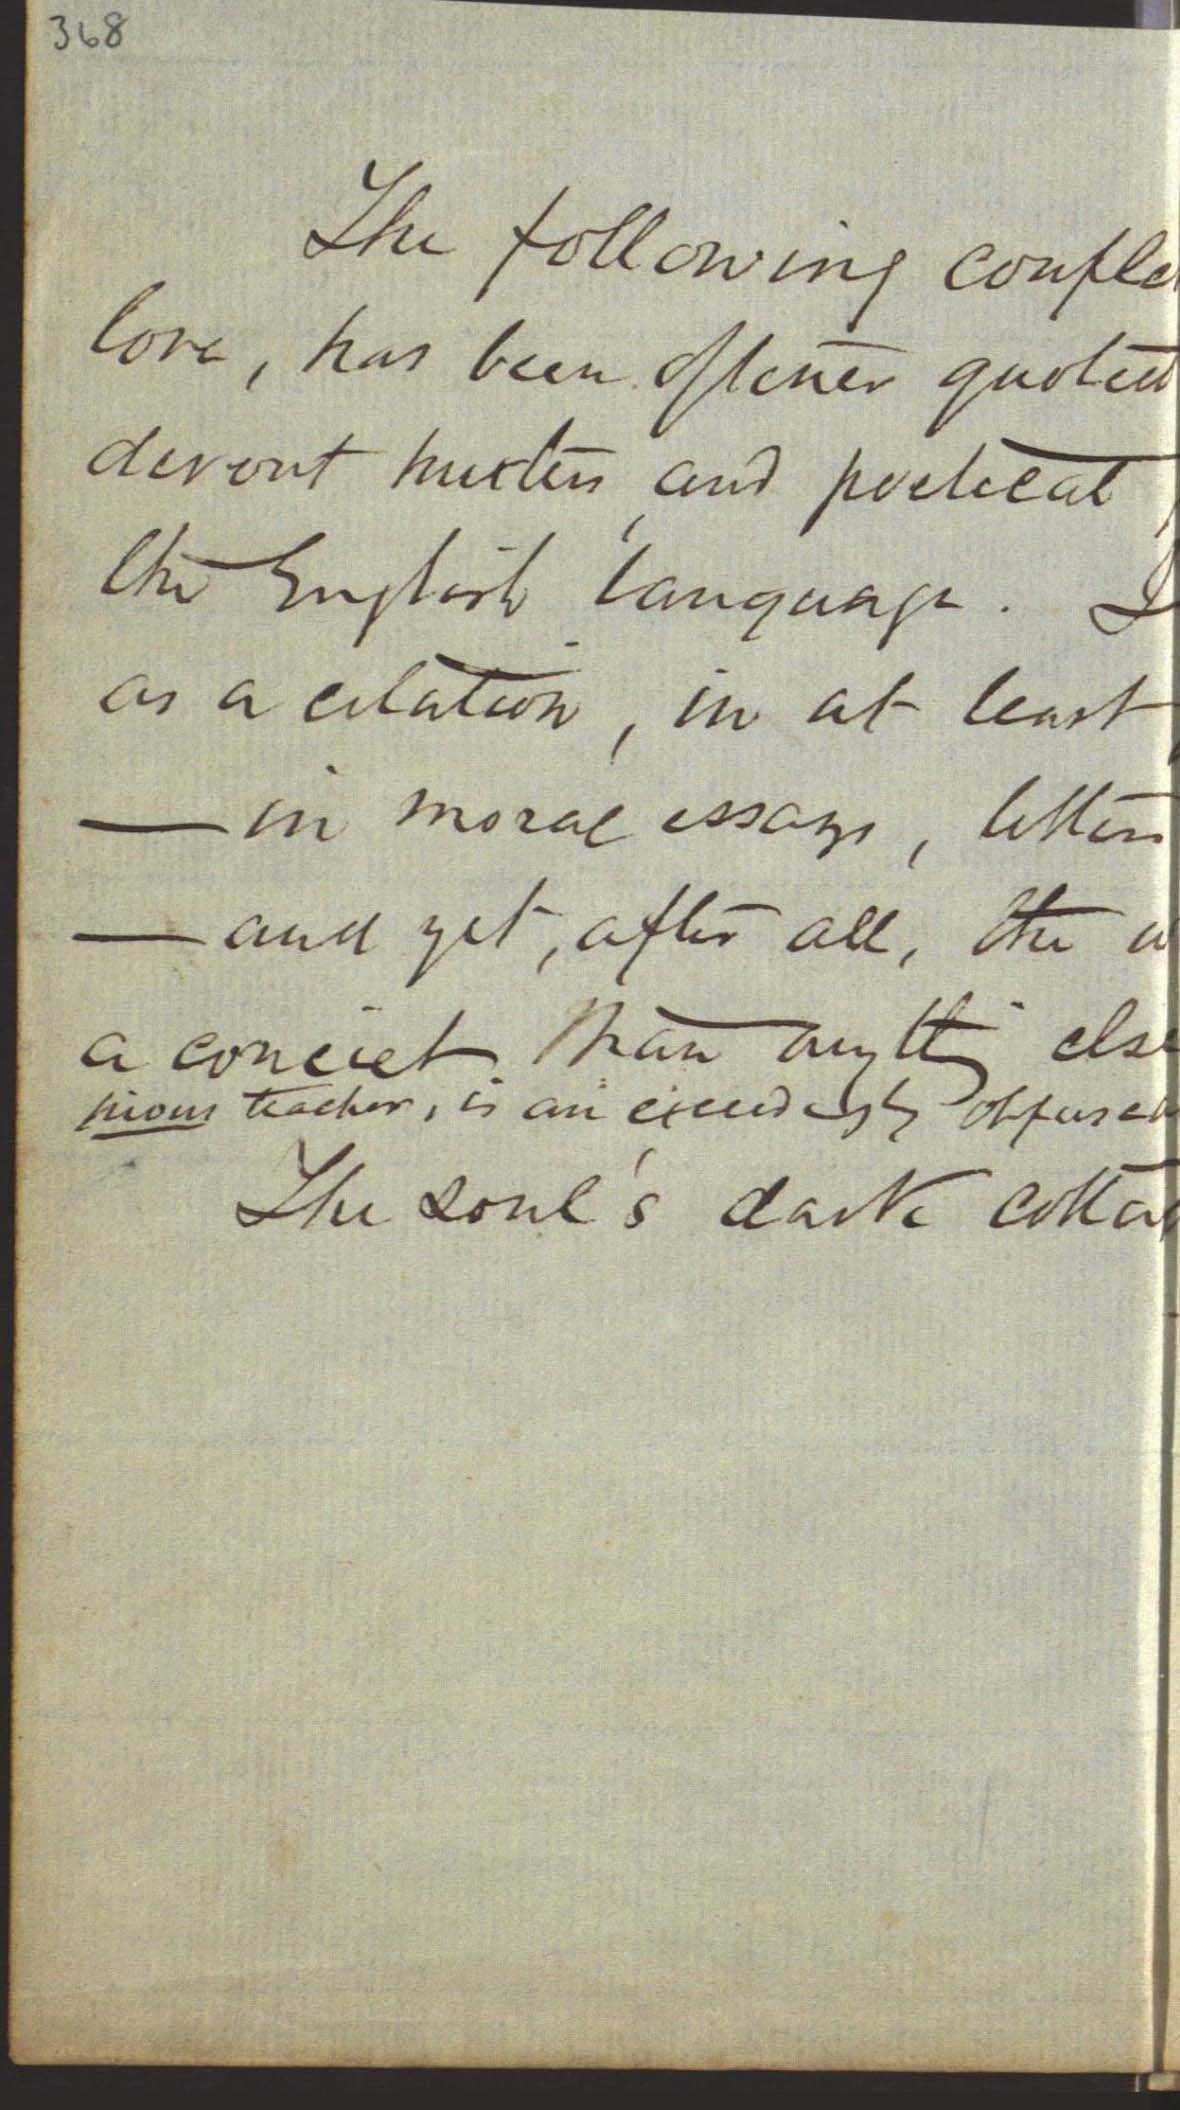 368
The following couple
love, has been oftener quoted
devout and poetical
the English language. I
as a citation, in at least
— in moral essays, letters
— and yet, after all, the w
a conciet than anythg else
pious teacher, is an exceedingly obfusca
The soul's dark cotta